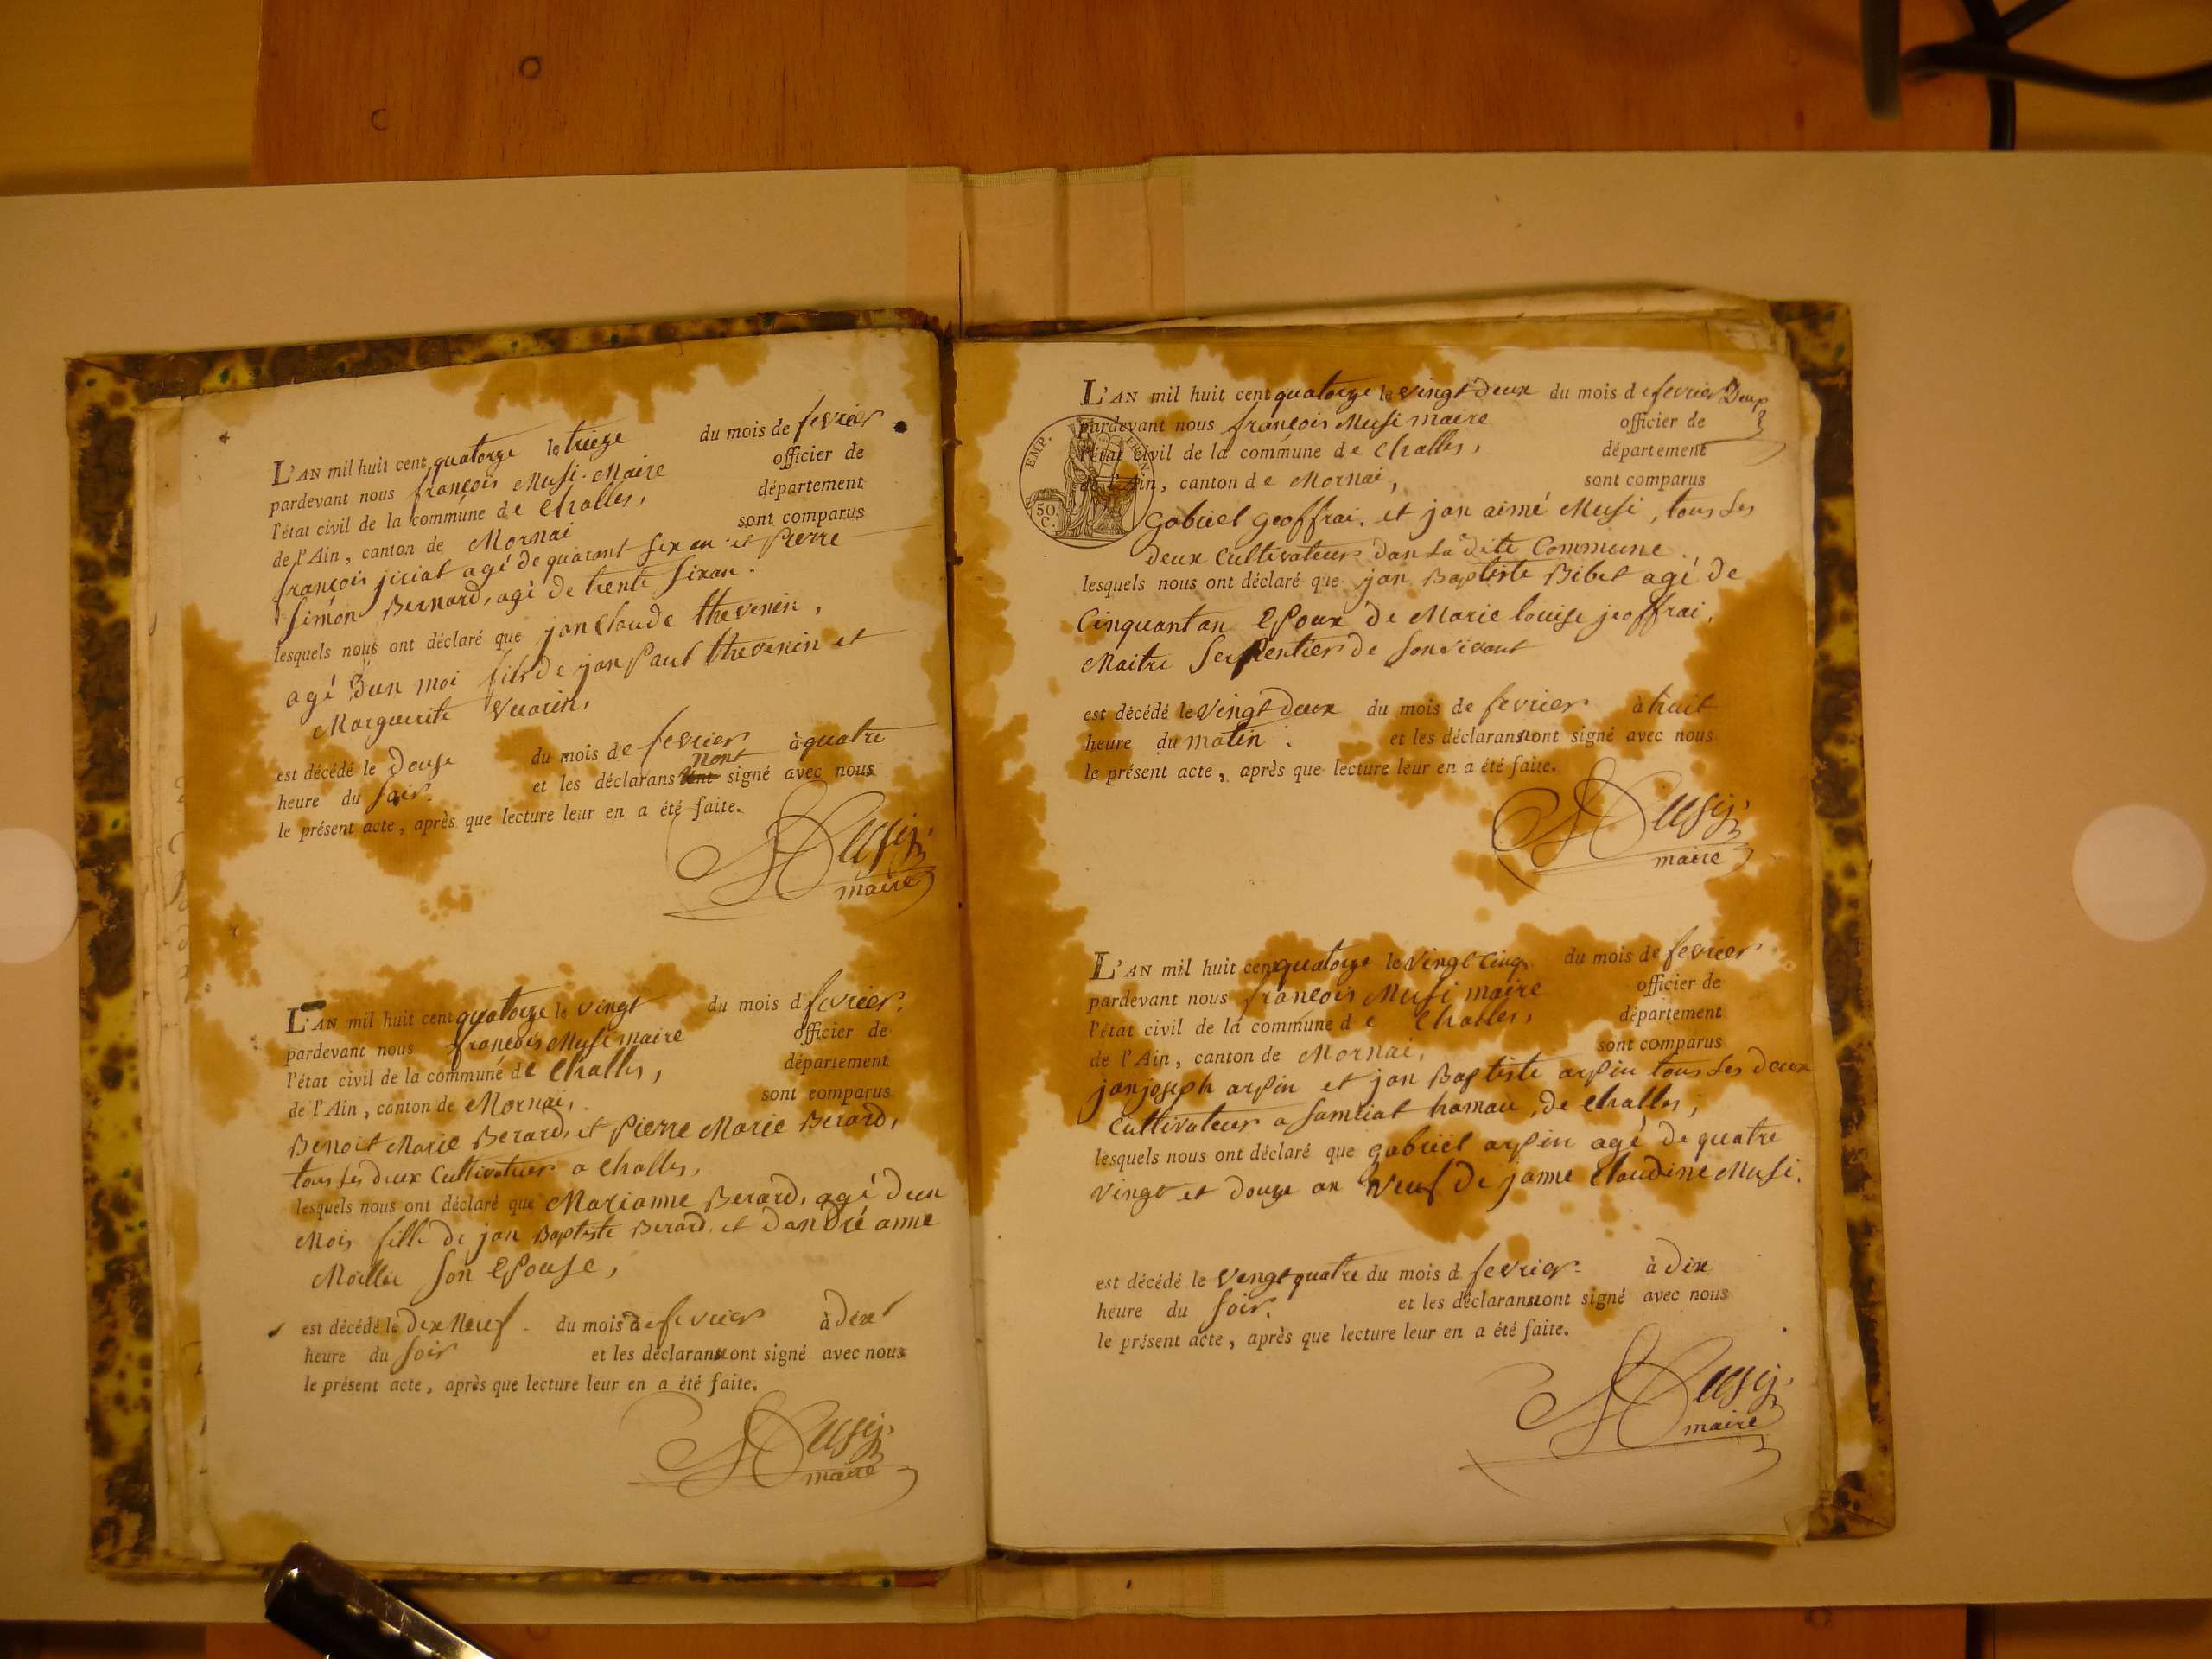 L'AN mil huit cent quatorze le treize du mois de fevrier
pardevant nous françois Musi Maire officier de
l'état civil de la commune de Challes, département
de l'Ain, canton de Mornai sont comparus
françois agé de quarant six an et Pierre
Simon Bernard, agé de trente sixan.
lesquels nous ont déclaré que jan Claude thevenin,
agé d'un moi fils de jan Paul thevenin et
Marguerite Vuarin,
est décédé le douse du mois de fevrier à quatre
heure du soir. et les déclarans nont signé avec nous
le présent acte, après que lecture leur en a été faite.
Musy
maire
L'AN mil huit cent quatorze le vingt du mois d fevrier.
pardevant nous françois Musi maire officier de
l'état civil de la commune de Challes, département
de l'Ain, canton de Mornai, sont comparus
Benoit Marie Berard, et Pierre Marie Berard,
tous les deux Cultivateur a Challes,
lesquels nous ont déclaré que Marianne Berard, agé dun
Mois fille de jan Baptiste Berard, et dandré anne
son Epouse,
est décédé le dix neuf du mois de fevrier à dix
heure du soir et les déclarans nont signé avec nous
le présent acte, après que lecture leur en a été faite.
Musy
maire
L'AN mil huit cent quatorze le vingt deux du mois de fevrier Deux
pardevant nous françois Musi maire officier de
l'état civil de la commune de Challes, département
de l'Ain, canton de Mornai, sont comparus
EMP. FRAN.
50.
C.
Gabriel Geoffrai, et jan aimé Musi, tous les
deux Cultivateur dan la dite Commune.
lesquels nous ont déclaré que jan Baptiste Bibet agé de
Cinquant an Epoux de Marie louise jeoffrai,
Maitre Serpentier de son vivant
est décédé le vingt deux du mois de fevrier à huit
heure du matin. et les déclarans nont signé avec nous
le présent acte, après que lecture leur en a été faite.
Musy
maire
L'AN mil huit cent quatorze le vingt cinq du mois de fevrier
pardevant nous françois Musi maire officier de
l'état civil de la commune d e Challes, département
de l'Ain, canton de Mornai, sont comparus
jan joseph arpin et jan Baptiste arpin tous les deux
Cultivateur a Samiat hamau, de Challes,
lesquels nous ont déclaré que gabriel arpin agé de quatre
vingt et douze an veuf de janne Claudine Musi.
est décédé le vingt quatre du mois d fevrier à dix
heure du soir. et les déclarans nont signé avec nous
le présent acte, après que lecture leur en a été faite.
Musy
maire